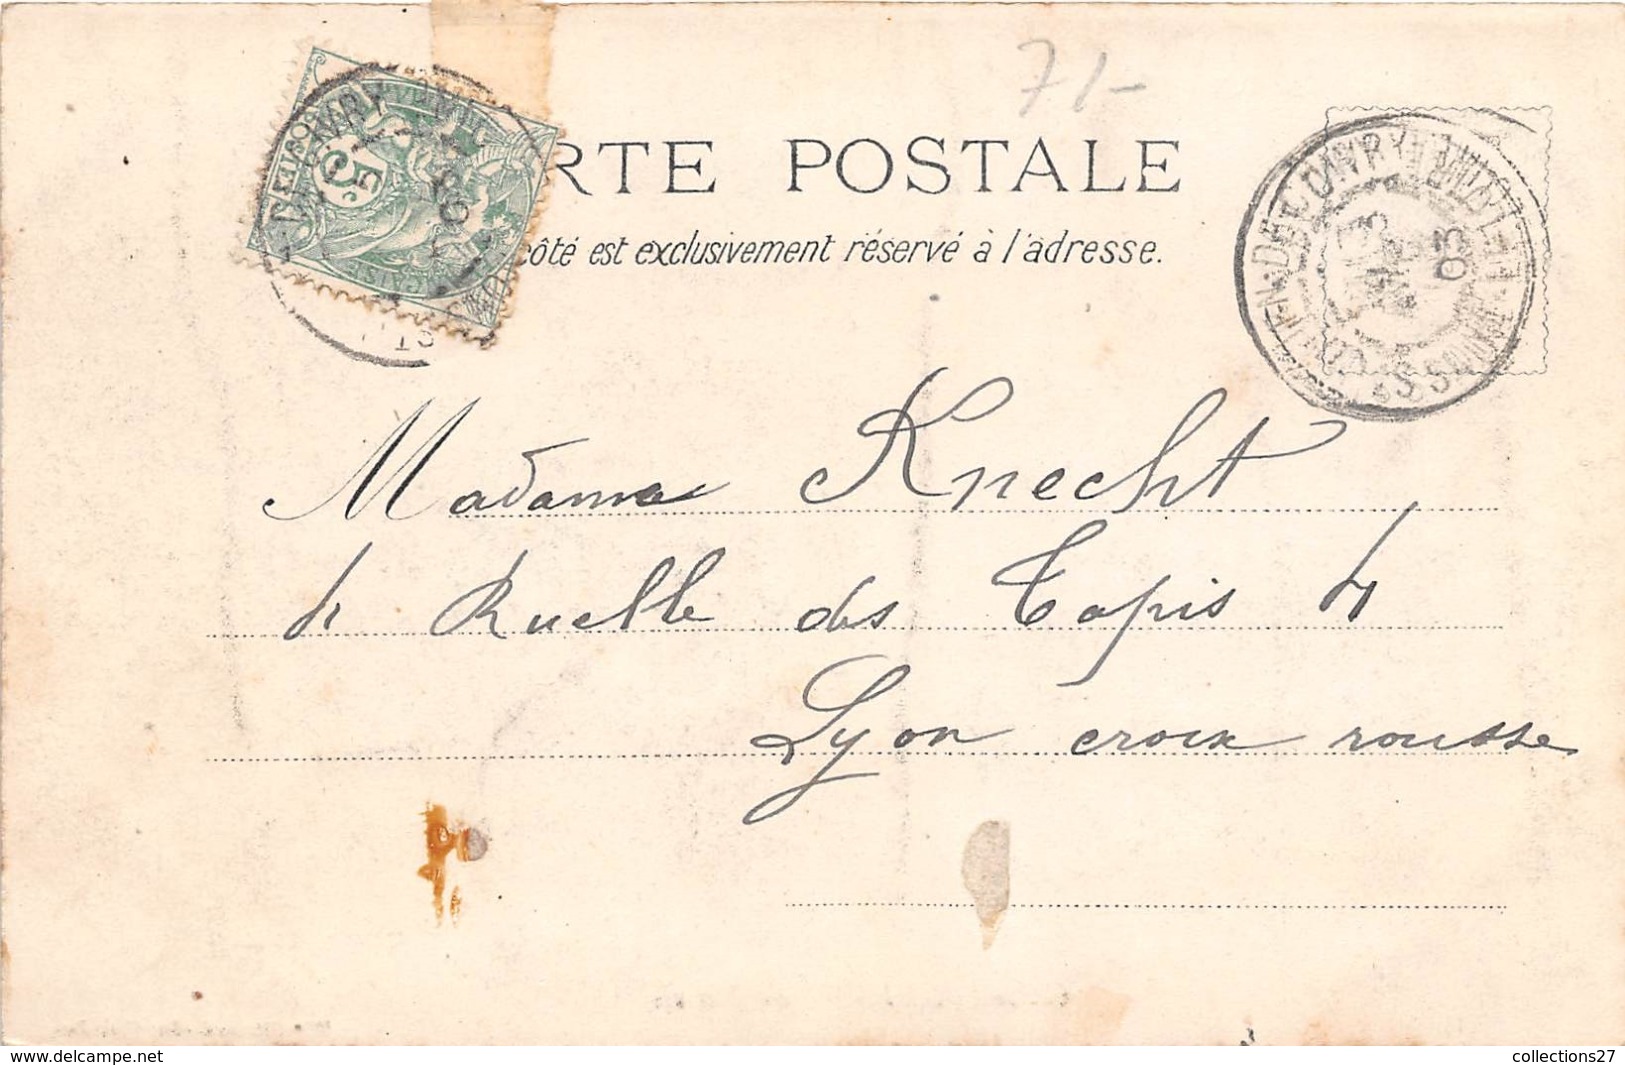 71-
RTE POSTALE
côté est exclusivement réservé à l'adresse.
5
03
Madame Knecht
4 Ruelle des Tapis 4
Lyon croix rousse
www.delcampe.net
collections27